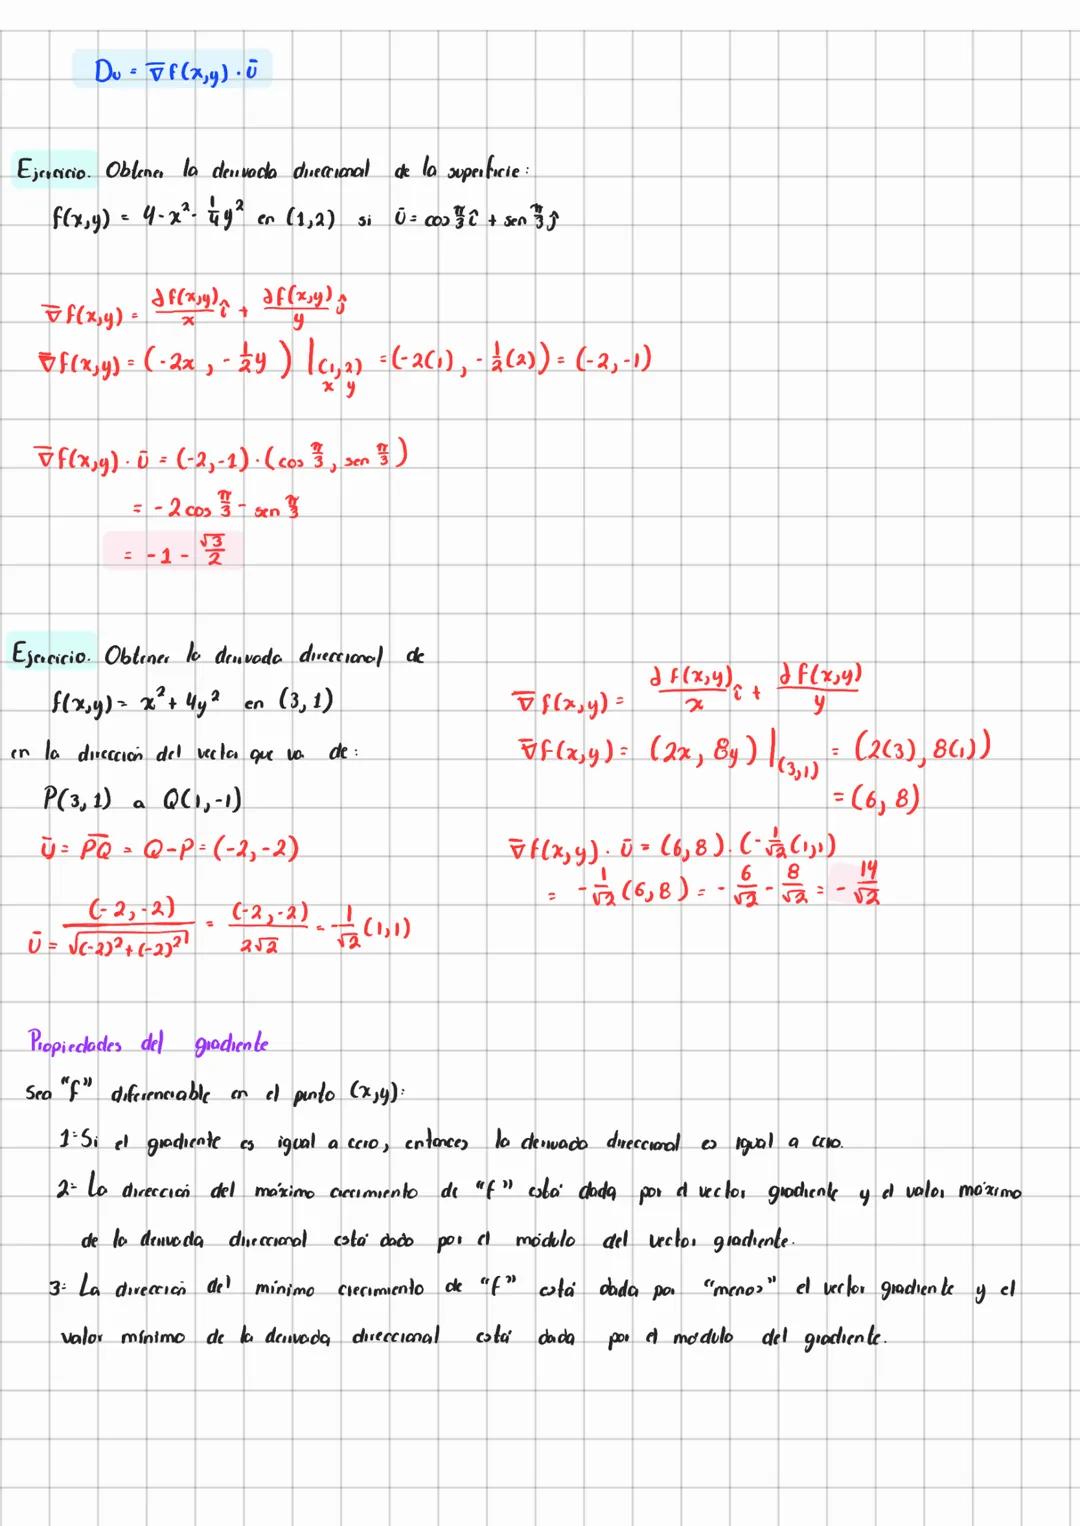 Du = ∇f(x,y) · ū
Ejercicio. Obtener la derivada direccional de la superficie:
f(x,y) = 4-x²- 1/4 y² en (1,2) si ū = cos π/3 î + sen π/3 ĵ
∇f(x,y) = ∂f(x,y)/x î + ∂f(x,y)/y ĵ
∇f(x,y) = (-2x, -1/2 y) |(1,2) = (-2(1), -1/2(2)) = (-2,-1)
x y
∇f(x,y) · ū = (-2,-1) · (cos π/3, sen π/3)
= -2 cos π/3 - sen π/3
= -1 - √3/2
Ejercicio. Obtener la derivada direccional de
f(x,y) = x² + 4y² en (3,1)
en la dirección del vector que va de:
P(3,1) a Q(1,-1)
ū = PQ = Q-P = (-2,-2)
ū = (-2,-2)/√((-2)²+(-2)²) = (-2,-2)/2√2 = -1/√2 (1,1)
∇f(x,y) = ∂f(x,y)/x î + ∂f(x,y)/y
∇f(x,y) = (2x, 8y) |(3,1) = (2(3), 8(1))
= (6, 8)
∇f(x,y) · ū = (6,8) · (-1/√2 (1,1)
= -1/√2 (6,8) = -6/√2 - 8/√2 = -14/√2
Propiedades del gradiente
Sea "f" diferenciable en el punto (x,y):
1- Si el gradiente es igual a cero, entonces la derivada direccional es igual a cero.
2- La dirección del máximo crecimiento de "f" está dada por el vector gradiente y el valor máximo
de la derivada direccional está dado por el módulo del vector gradiente.
3- La dirección del mínimo crecimiento de "f" está dada por "menos" el vector gradiente y el
valor mínimo de la derivada direccional está dada por el modulo del gradiente.